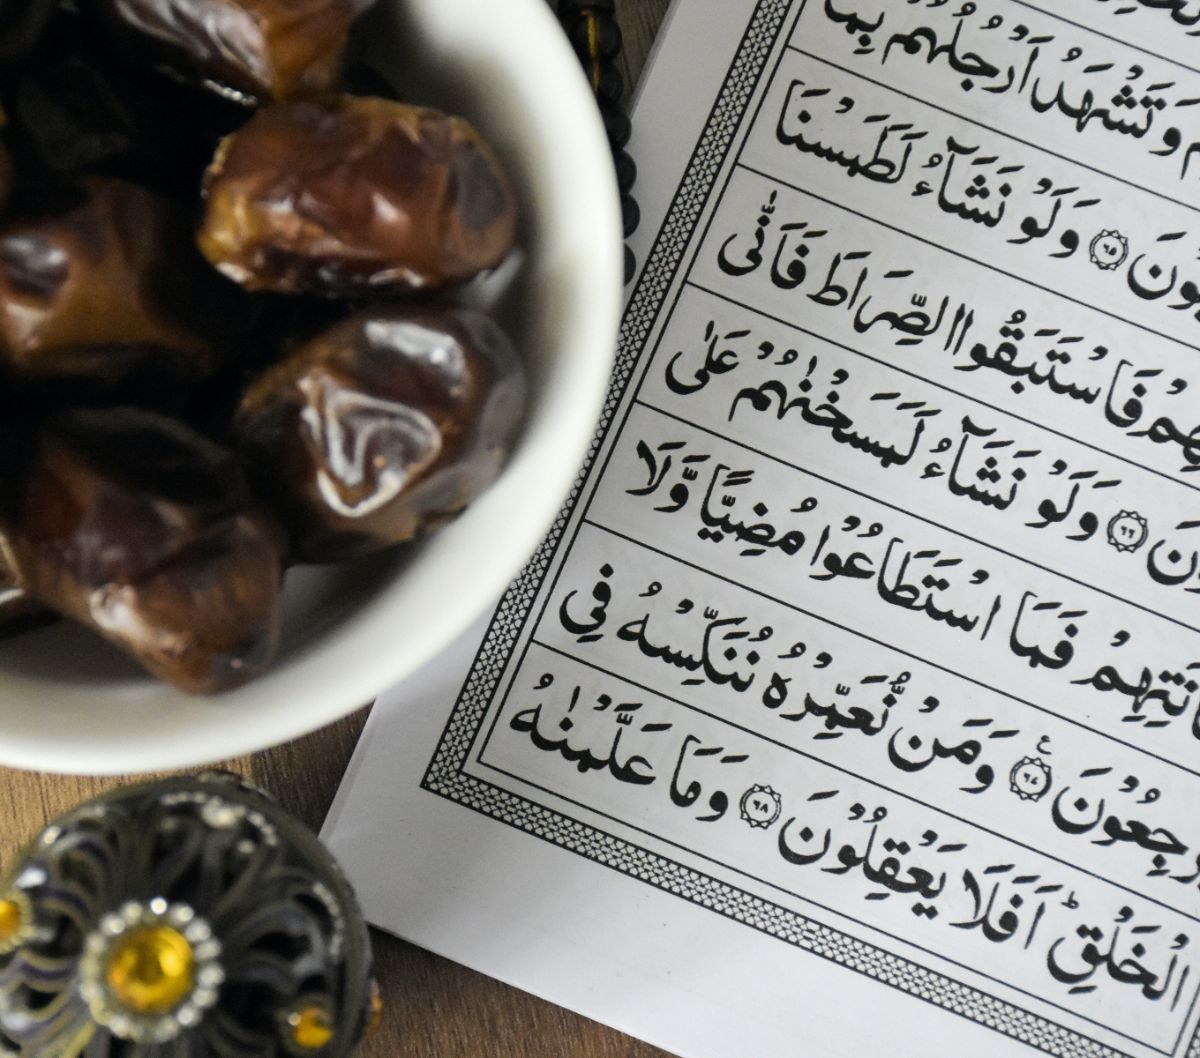 وَتَشْهَدُ اَرْجُلُهُمْ بِمَا
وْنَ ۝۶۵ وَلَوْ نَشَآءُ لَطَمَسْنَا
فَاسْتَبَقُوا الصِّرَاطَ فَاَنّٰى
وْنَ ۝۶۶ وَلَوْ نَشَآءُ لَمَسَخْنٰهُمْ عَلٰى
نَتِهِمْ فَمَا اسْتَطَاعُوْا مُضِيًّا وَّلَا
رْجِعُوْنَ ۝۶۷ وَمَنْ نُّعَمِّرْهُ نُنَكِّسْهُ فِي
الْخَلْقِؕ اَفَلَا يَعْقِلُوْنَ ۝۶۸ وَمَا عَلَّمْنٰهُ